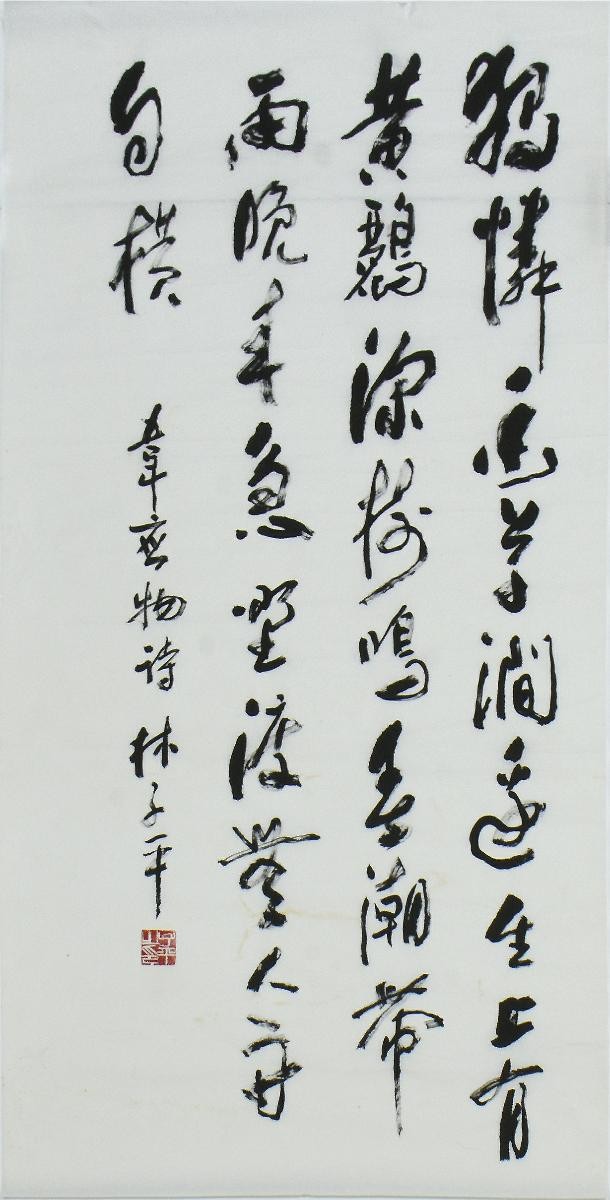 獨憐幽草澗邊生上有
黄鸝深樹鳴春潮帶
雨晚来急野渡無人舟
自横
韋應物詩 林子平
子平之印